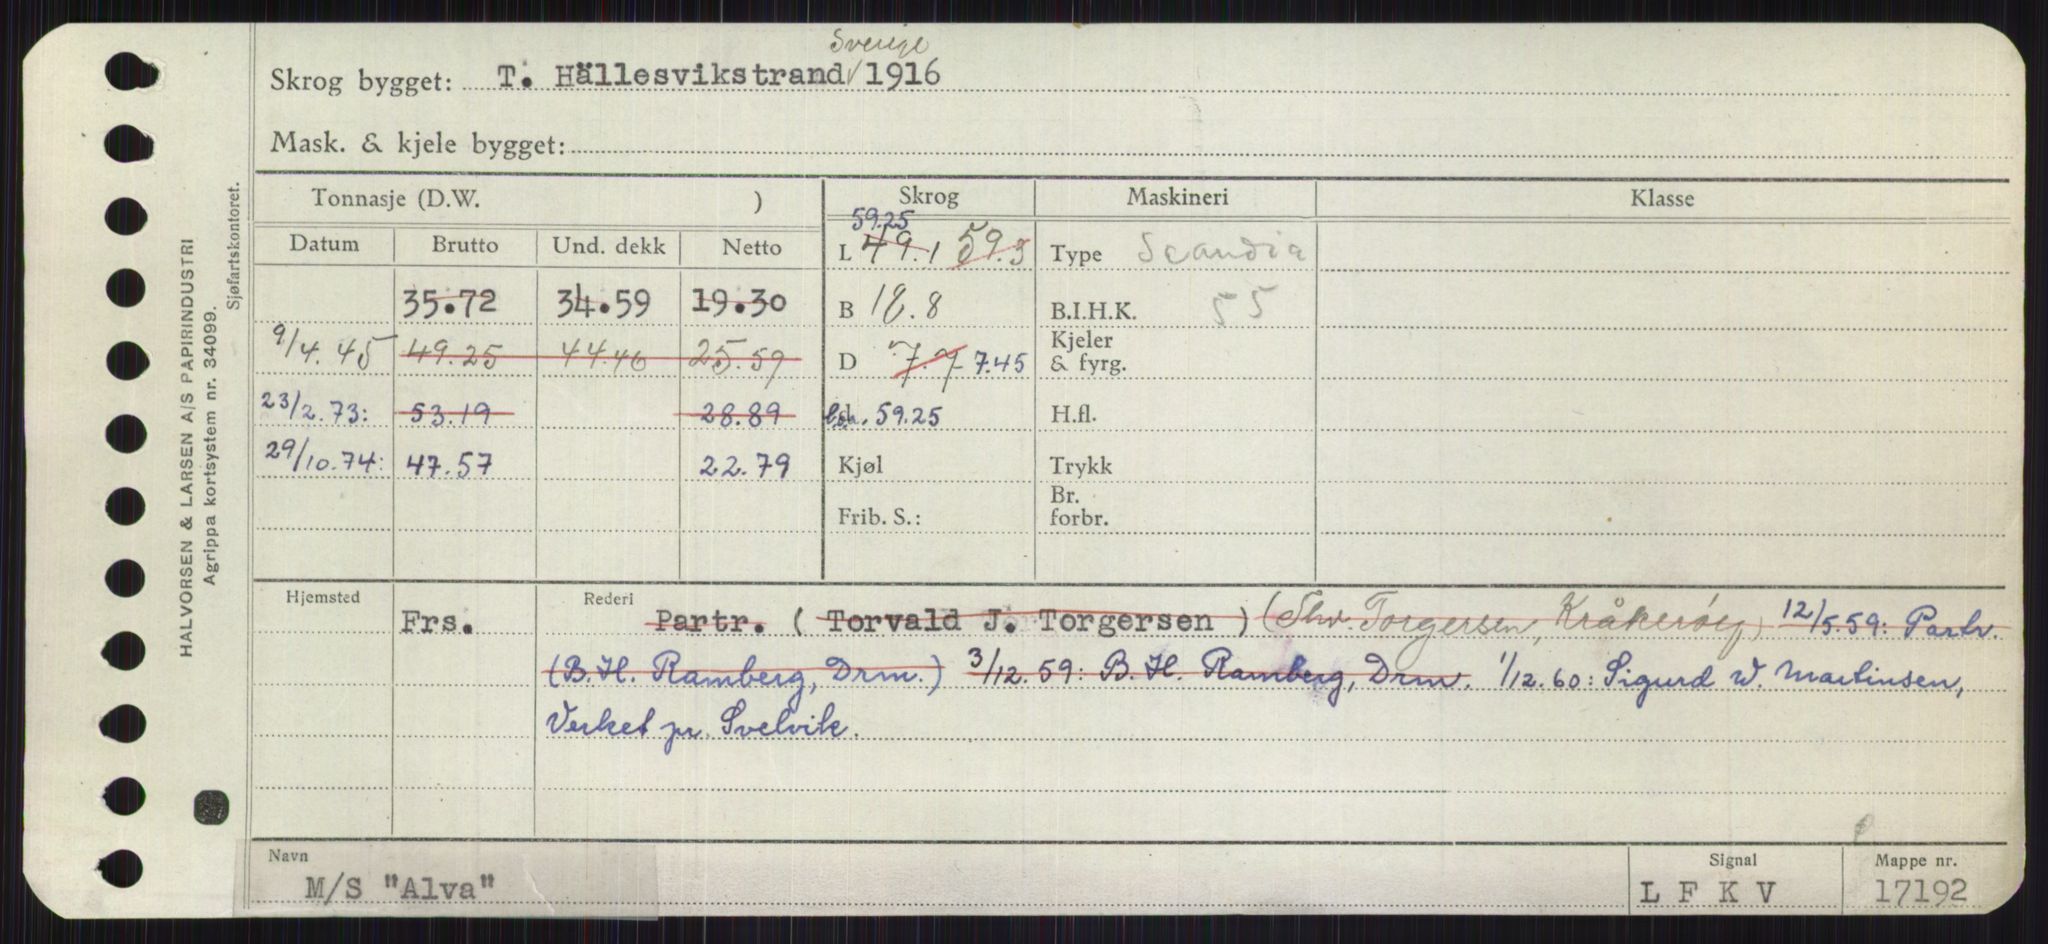 Sverige
Skrog bygget: T. Hällesvikstrand 1916
Mask. & kjele bygget:
Tonnasje (D.W. ) Skrog Maskineri Klasse
Datum Brutto Und. dekk Netto
59.25
L 49.1 59.3 Type Scandia
35.72 34.59 19.30 B 18.8 B.I.H.K. 55
9/4.45 49.25 44.40 25.59 D 7.7 7.45 Kjeler & fyrg.
23/2.73: 53.19 28.89 59.25 H.fl.
29/10.74: 47.57 22.79 Kjøl Trykk
Frib. S.: Br. forbr.
Hjemsted Frs. Rederi Partr. ( Torvald J. Torgersen ) (Thv. Torgersen, Kråkerøy) 12/5.59: Partr.
(B.H. Ramberg, Drm.) 3/12.59: B.H. Ramberg, Drm. 1/12.60: Sigurd W. Martinsen,
Verket pr. Svelvik.
Navn Signal Mappe nr.
M/S "Alva" L F K V 17192
HALVORSEN & LARSEN A/S PAPIRINDUSTRI
Agrippa kortsystem nr. 34099.
Sjøfartskontoret.